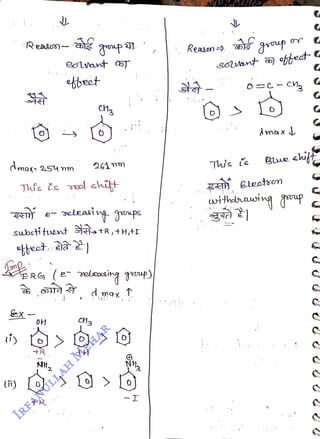 ⇓
Reason - कोई group या
solvant का
effect
जैसे
CH3
→
λmax- 254nm 261nm
This is red shift
इसमें e- releasing groups
substituent जैसे → +R, +H, +I
effect. होते है|
Imp
ERG (e- releasing group)
के लगाने से λmax ↑
Ex -
OH CH3
(i) > >
+R +H
NH2 ⊕NH3
(ii) > >
+R -I
⇓
Reason → कोई group or
solvant का effect
जैसे - O=C-CH3
>
λmax ↓
This is Blue shift
इसमें Electron
withdrawing group
जुड़ते है|
IRFANULLAH MAHAR